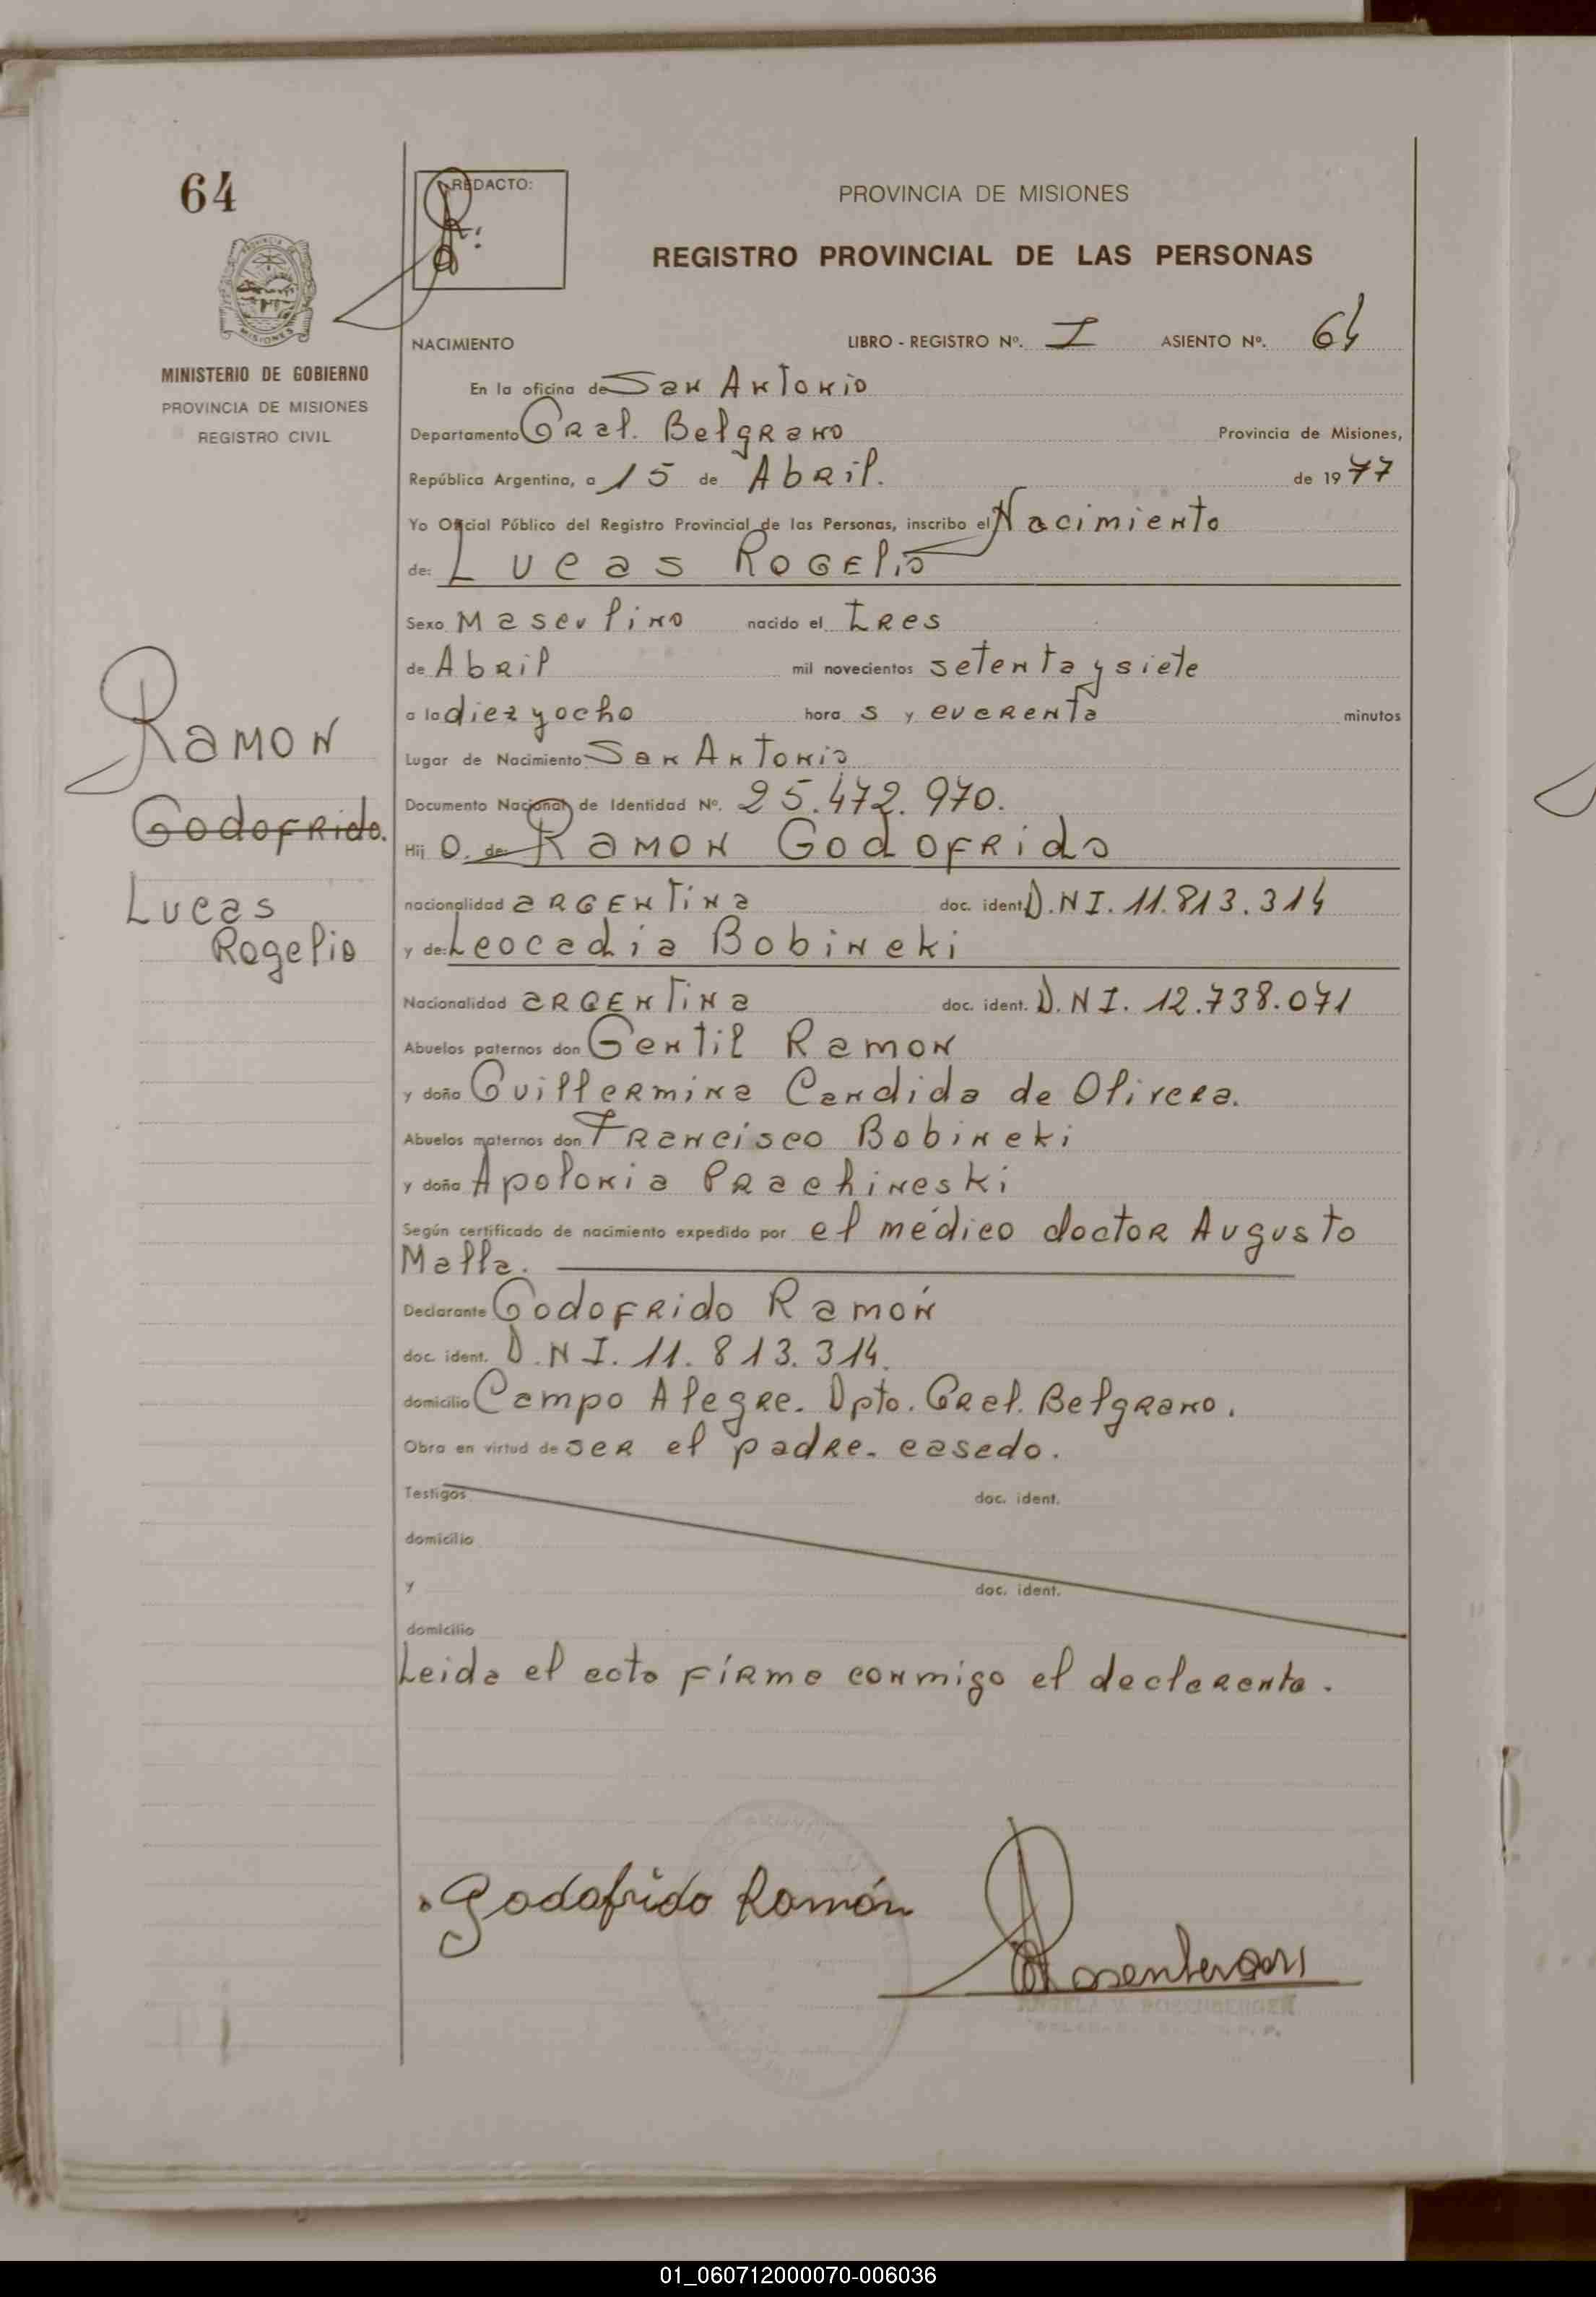 64
REDACTO:
PROVINCIA DE MISIONES
REGISTRO PROVINCIAL DE LAS PERSONAS
MINISTERIO DE GOBIERNO
PROVINCIA DE MISIONES
REGISTRO CIVIL
NACIMIENTO LIBRO - REGISTRO Nº. I ASIENTO Nº. 64
En la oficina de San Antonio
Departamento Gral. Belgrano Provincia de Misiones,
República Argentina, a 15 de Abril. de 1977
Yo Oficial Público del Registro Provincial de las Personas, inscribo el Nacimiento
de: Lucas Rogelio
Sexo Masculino nacido el tres
de Abril mil novecientos setenta y siete
a la diez y ocho hora s y cuarenta minutos
Lugar de Nacimiento San Antonio
Documento Nacional de Identidad Nº. 25.472.970.
Hij o. de: Ramon Godofrido
nacionalidad argentina doc. ident. D.N.I. 11.813.314
y de: Leocadia Bobincki
Nacionalidad argentina doc. ident. D.N.I. 12.738.071
Abuelos paternos don Gentil Ramon
y doña Guillermina Candida de Olivera.
Abuelos maternos don Francisco Bobincki
y doña Apolonia Prachineski
Según certificado de nacimiento expedido por el médico doctor Augusto
Malla.
Declarante Godofrido Ramón
doc. ident. D.N.I. 11.813.314.
domicilio Campo Alegre. Dpto. Gral. Belgrano.
Obra en virtud de ser el padre. casado.
Testigos doc. ident.
domicilio
y doc. ident.
domicilio
Leida el acta firma conmigo el declarante.
Ramon
Godofrido.
Lucas
Rogelio
Godofrido Ramón
Rosenberger
ANGELA V. ROSENBERGER
01_060712000070-006036